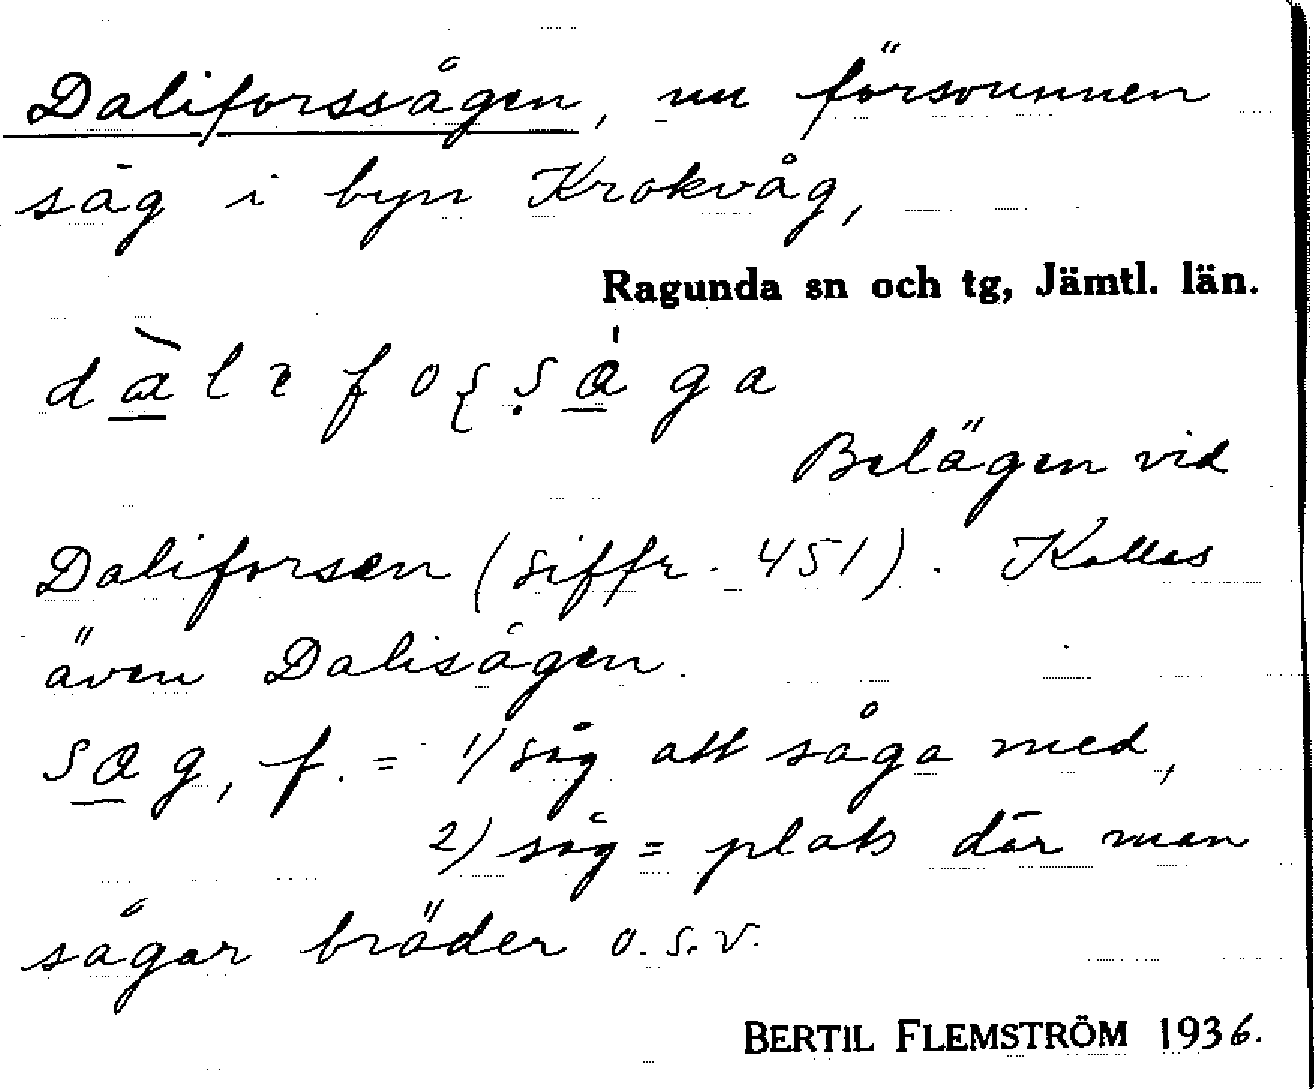 Daliforssågen, nu försvunnen
såg i byn Krokvåg,
Ragunda sn och tg, Jämtl. län.
Belägen vid
Daliforsen (siffr. 451). Kallas
även Dalisågen.
sag, f. = 1/ såg att såga med,
2) såg = plats där man
sågar bräder o.s.v.
BERTIL FLEMSTRÖM 1936.